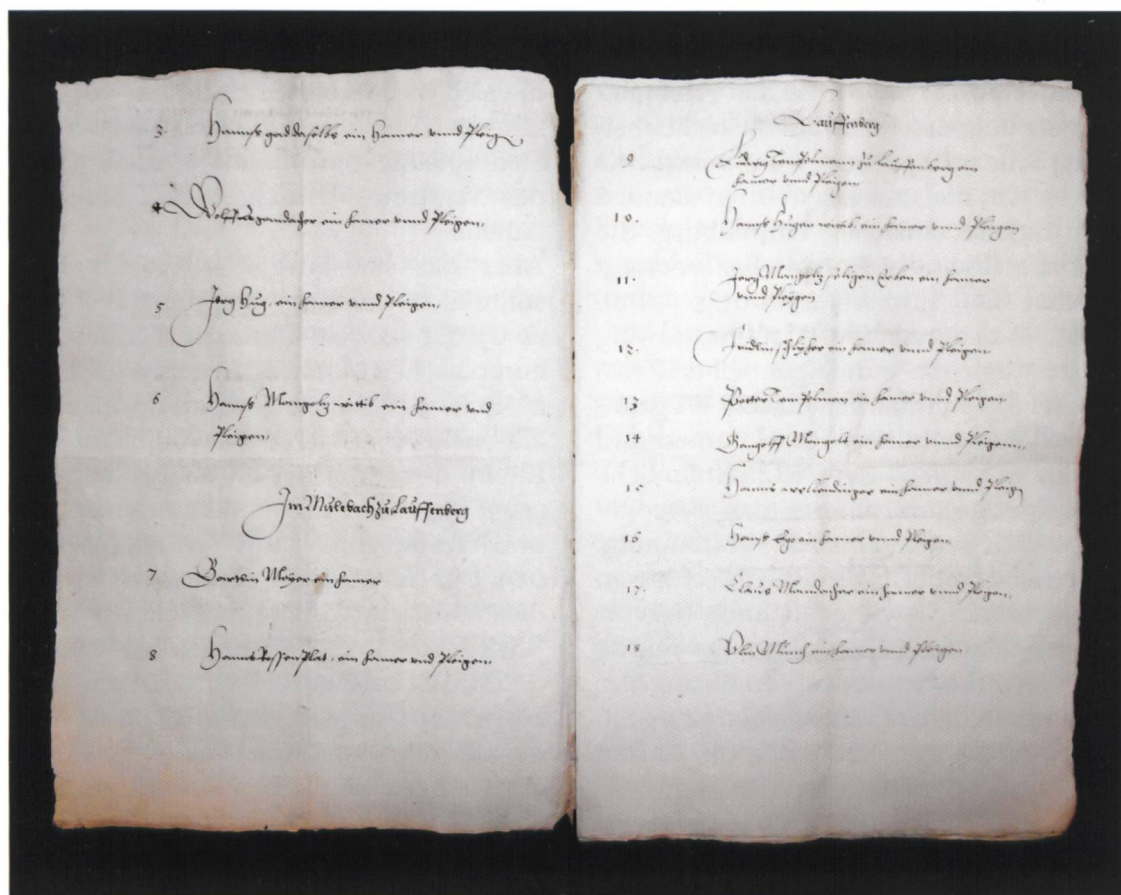 3. Hannß ein hamer vnnd Pleigen
4 Wolff Agendacher ein hamer vnnd Pleigen
5 Jerg Hug ein hamer vnnd Pleigen
6 Hannß Mangoltz ein hamer vnd
Pleigen
Im Mulebach zu Lauffenberg
7 Bartlin Meyer ein hamer
8 Hanns ein hamer vnd Pleigen
Lauffenberg
9. zu Lauffenberg ein
hamer vnnd Pleigen
10. Hannß Hugen ein hamer vnnd Pleigen
11. Jerg Mangoltz seligen Erben ein hamer
vnnd Pleigen
12. Fridlin ein hamer vnnd Pleigen
13. Petter ein hamer vnnd Pleigen
14 Gangolff Mangolt ein hamer vnnd Pleigen
15 Hanns ein hamer vnnd Pleigen
16 Hannß ein hamer vnnd Pleigen
17. Claus Mandacher ein hamer vnnd Pleigen
18 Ulin Münch ein hamer vnnd Pleigen